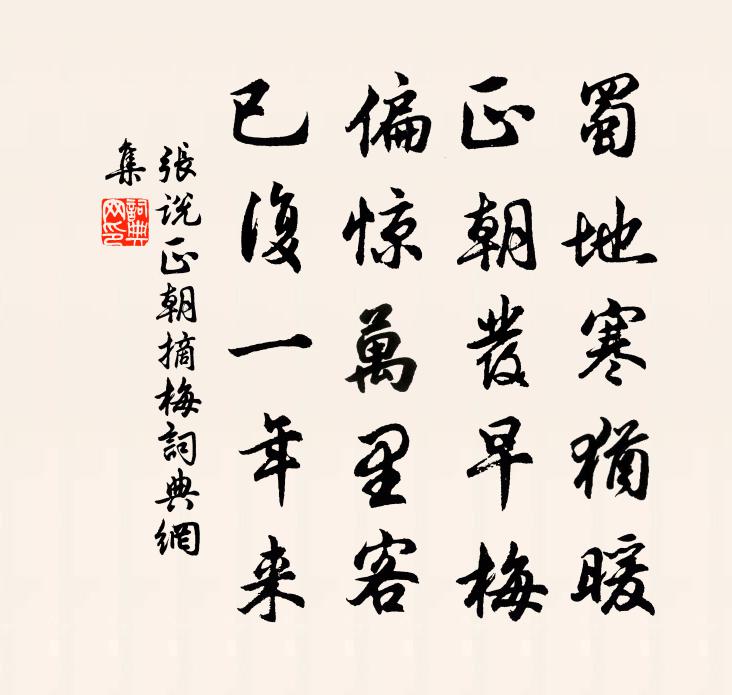 蜀地寒猶暖
正朝發早梅
偏惊萬里客
已復一年来
張说正朝摘梅詞典網
集
詞典
网印